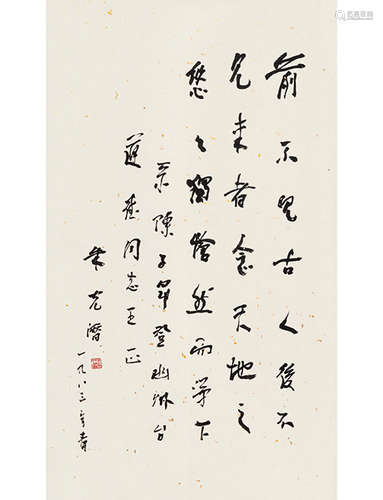 前不见古人后不
见来者念天地之
悠々独怆然而第下
录陈子昂登幽州台
莲台同志正正
朱光潜
一九八三年春